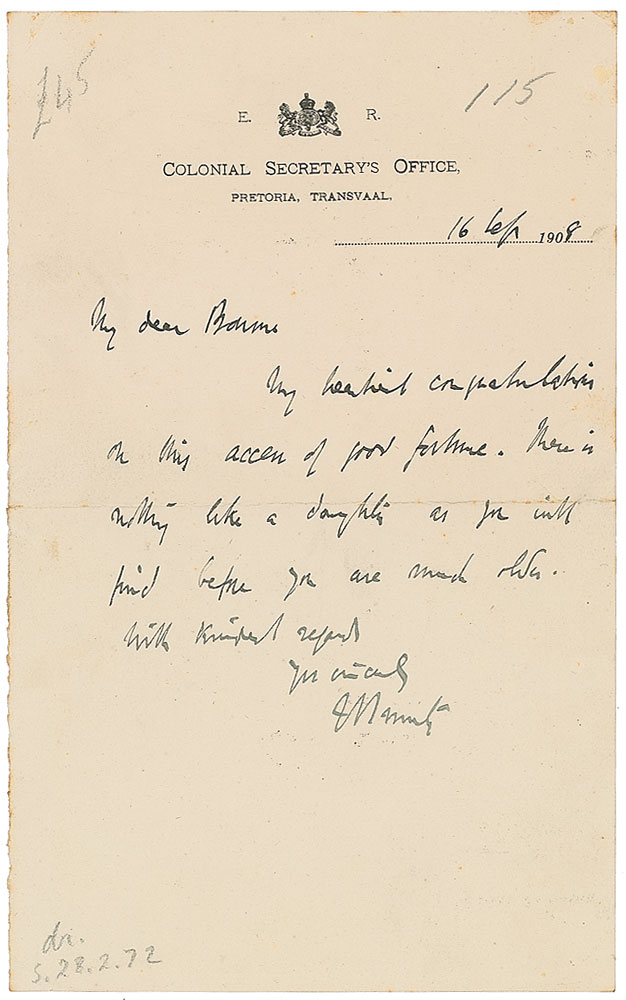 £45
115
E. R.
COLONIAL SECRETARY'S OFFICE,
PRETORIA, TRANSVAAL,
16 Sep 1908
My dear Bourne
My heartiest congratulations
on this access of good fortune. There is
nothing like a daughter as you will
find before you are much older.
With kindest regards
Yrs sincerely
JCSmuts
S. 28.2.72